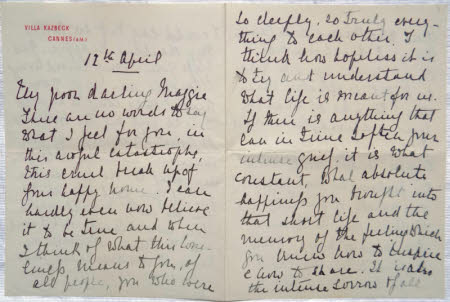 VILLA KAZBECK
CANNES (A.M.)
12th April
My poor darling Maggie
There are no words to say
what I feel for you, in
this awful catastrophe,
this cruel break up of
your happy home. I can
hardly even now believe
it to be true and when
I think of what this lone-
liness means to you, of
all people, you who were
so deeply, so truly every-
thing to each other. I
think how hopeless it is
to try and understand
what life is meant for us.
If there is anything that
can in time soften your
intense grief, it is what
constant, what absolute
happiness you brought into
that short life and the
memory of the feeling which
you knew how to inspire
& how to share. It is also
the intense sorrow of all